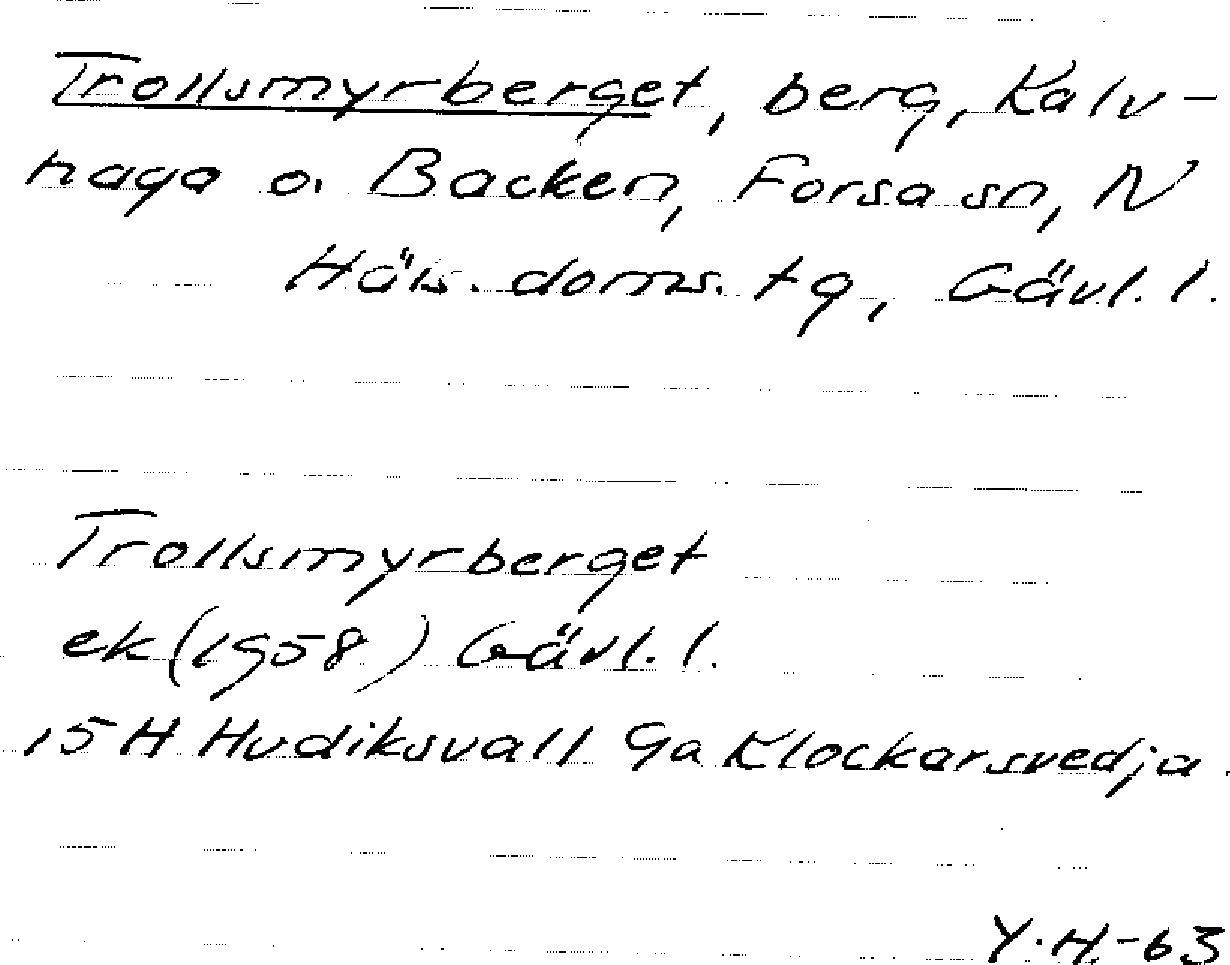 Trollsmyrberget, berg, Kalv-
haga o. Backen, Forsa sn, N
Häls. doms. tg, Gävl. l.
Trollsmyrberget
ek (1958) Gävl. l.
15H Hudiksvall 9a Klockarsvedja.
Y.H.-63